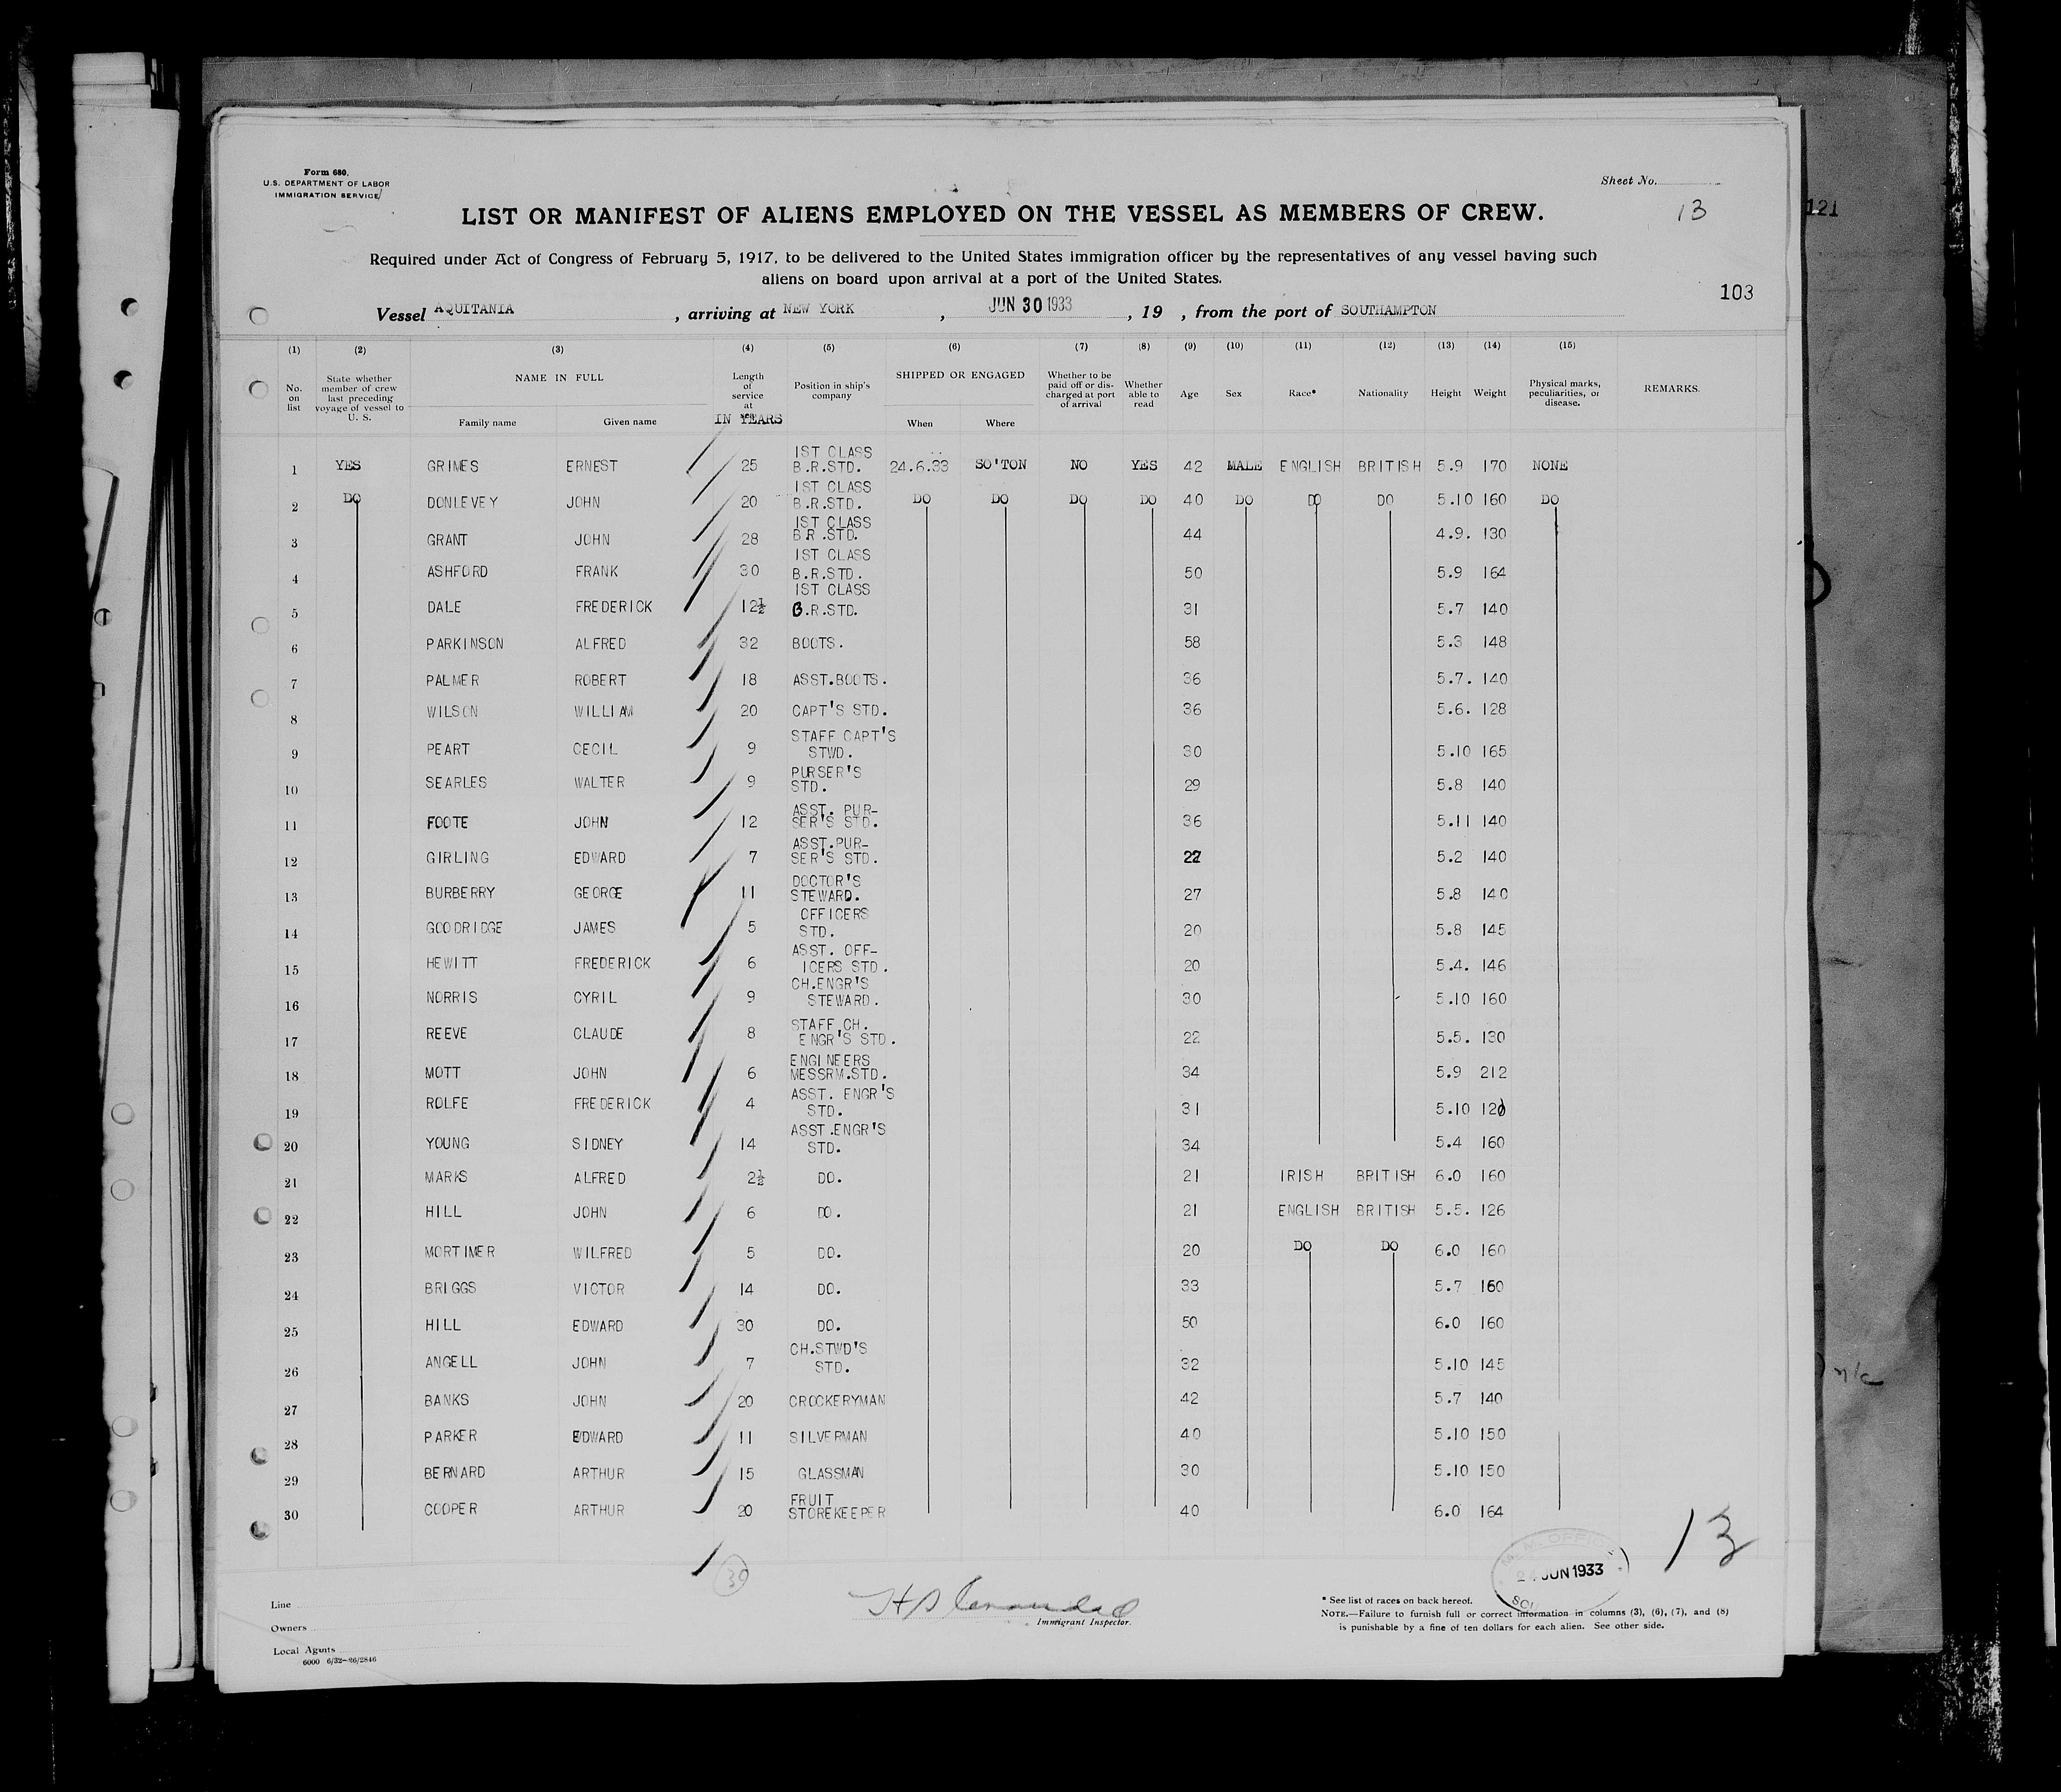 Form 680.
U.S. DEPARTMENT OF LABOR
IMMIGRATION SERVICE
Sheet No.
13
121
LIST OR MANIFEST OF ALIENS EMPLOYED ON THE VESSEL AS MEMBERS OF CREW.
Required under Act of Congress of February 5, 1917, to be delivered to the United States immigration officer by the representatives of any vessel having such
aliens on board upon arrival at a port of the United States.
103
Vessel AQUITANIA , arriving at NEW YORK , JUN 30 1933 , 19 , from the port of SOUTHAMPTON
(1) (2) (3) (4) (5) (6) (7) (8) (9) (10) (11) (12) (13) (14) (15)
No. on list State whether member of crew last preceding voyage of vessel to U. S. NAME IN FULL Family name Given name Length of service at sea IN YEARS Position in ship's company SHIPPED OR ENGAGED When Where Whether to be paid off or discharged at port of arrival Whether able to read Age Sex Race* Nationality Height Weight Physical marks, peculiarities, or disease. REMARKS.
1 YES GRIMES ERNEST 25 1ST CLASS B.R.STD. 24.6.33 SO'TON NO YES 42 MALE ENGLISH BRITISH 5.9 170 NONE
2 DO DONLEVEY JOHN 20 1ST CLASS B.R.STD. DO DO DO DO 40 DO DO DO 5.10 160 DO
3 GRANT JOHN 28 1ST CLASS B.R.STD. 44 4.9. 130
4 ASHFORD FRANK 30 1ST CLASS B.R.STD. 50 5.9 164
5 DALE FREDERICK 12½ 1ST CLASS B.R.STD. 31 5.7 140
6 PARKINSON ALFRED 32 BOOTS. 58 5.3 148
7 PALMER ROBERT 18 ASST.BOOTS. 36 5.7. 140
8 WILSON WILLIAM 20 CAPT'S STD. 36 5.6. 128
9 PEART CECIL 9 STAFF CAPT'S STWD. 30 5.10 165
10 SEARLES WALTER 9 PURSER'S STD. 29 5.8 140
11 FOOTE JOHN 12 ASST. PUR-SER'S STD. 36 5.11 140
12 GIRLING EDWARD 7 ASST.PUR-SER'S STD. 22 5.2 140
13 BURBERRY GEORGE 11 DOCTOR'S STEWARD. 27 5.8 140
14 GOODRIDGE JAMES 5 OFFICERS STD. 20 5.8 145
15 HEWITT FREDERICK 6 ASST. OFF-ICERS STD. 20 5.4. 146
16 NORRIS CYRIL 9 CH.ENGR'S STEWARD. 30 5.10 160
17 REEVE CLAUDE 8 STAFF CH. ENGR'S STD. 22 5.5. 130
18 MOTT JOHN 6 ENGINEERS MESSRM.STD. 34 5.9 212
19 ROLFE FREDERICK 4 ASST. ENGR'S STD. 31 5.10 120
20 YOUNG SIDNEY 14 ASST.ENGR'S STD. 34 5.4 160
21 MARKS ALFRED 2½ DO. 21 IRISH BRITISH 6.0 160
22 HILL JOHN 6 DO. 21 ENGLISH BRITISH 5.5. 126
23 MORTIMER WILFRED 5 DO. 20 DO DO 6.0 160
24 BRIGGS VICTOR 14 DO. 33 5.7 160
25 HILL EDWARD 30 DO. 50 6.0 160
26 ANGELL JOHN 7 CH.STWD'S STD. 32 5.10 145
27 BANKS JOHN 20 CROCKERYMAN 42 5.7 140
28 PARKER EDWARD 11 SILVERMAN 40 5.10 150
29 BERNARD ARTHUR 15 GLASSMAN 30 5.10 150
30 COOPER ARTHUR 20 FRUIT STOREKEEPER 40 6.0 164
13
30
M. M. OFFICE
24 JUN 1933
Line
Owners
Local Agents
6000 6/32-26/2846
Immigrant Inspector.
* See list of races on back hereof.
NOTE.—Failure to furnish full or correct information in columns (3), (6), (7), and (8)
is punishable by a fine of ten dollars for each alien. See other side.